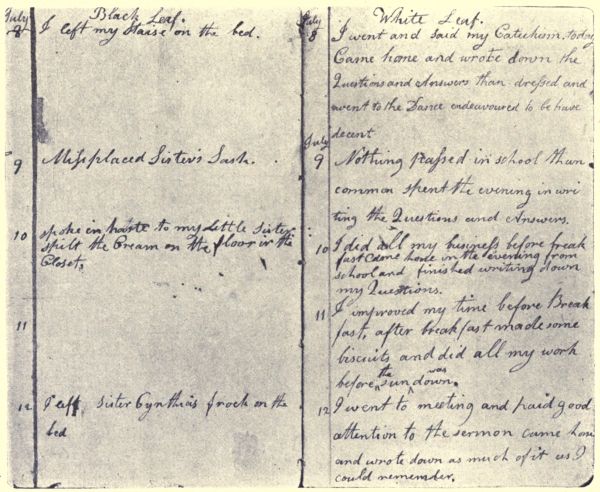 Black Leaf.
July
8 I left my Staise on the bed.
9 Missplaced Sister's Sash.
10 spoke in haste to my Little Sister
spilt the Cream on the floor in the
Closet.
11
12 Left Sister Cynthia's frock on the
bed
White Leaf.
July
8 I went and said my Catechism today
Came home and wrote down the
Questions and Answers than dressed and
went to the Dance endeavoured to be have
decent
July
9 Nothing passed in school than
common spent the evening in wri
ting the Questions and Answers.
10 I did all my business before break
fast Came home in the evening from
school and finished writing down
my Questions.
11 I improved my time before Break
fast, after breakfast made some
biscuits and did all my work
before the sun was down.
12 I went to meeting and paid good
attention to the sermon came home
and wrote down as much of it as I
could remember.